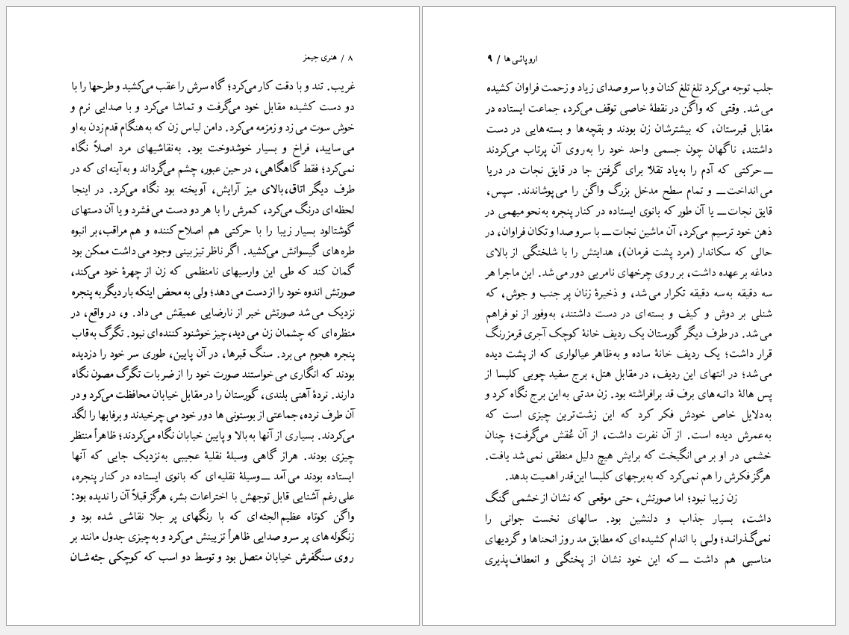 ۸ / هنری جیمز
غریب. تند و با دقت کار می‌کرد؛ گاه سرش را عقب می‌کشید و طرحها را با
دو دست کشیده مقابل خود می‌گرفت و تماشا می‌کرد و با صدایی نرم و
خوش سوت می زد و زمزمه می‌کرد. دامن لباس زن که به هنگام قدم زدن به او
می سایید، فراخ و بسیار خوشدوخت بود. به‌نقاشیهای مرد اصلاً نگاه
نمی‌کرد؛ فقط گاهگاهی، در حین عبور، چشم می‌گرداند و به آینه ای که در
طرف دیگر اتاق،بالای میز آرایش، آویخته بود نگاه می‌کرد. در اینجا
لحظه ای درنگ می‌کرد، کمرش را با هر دو دست می فشرد و یا آن دستهای
گوشتالود بسیار زیبا را با حرکتی هم اصلاح کننده و هم مراقب،بر انبوه
طره های گیسوانش می‌کشید. اگر ناظر تیزبینی وجود می داشت ممکن بود
گمان کند که طی این وارسیهای نامنظمی که زن از چهرهٔ خود می‌کند،
صورتش اندوه خود را از دست می دهد؛ ولی به محض اینکه بار دیگر به پنجره
نزدیک می شد صورتش خبر از نارضایی عمیقش می داد. و، در واقع، در
منظره ای که چشمان زن می دید،چیز خوشنود کننده ای نبود. تگرگ به قاب
پنجره هجوم می برد. سنگ قبرها، در آن پایین، طوری سر خود را دزدیده
بودند که انگاری می خواستند صورت خود را از ضربات تگرگ مصون نگاه
دارند. نردهٔ آهنی بلندی، گورستان را در مقابل خیابان محافظت می‌کرد و در
آن طرف نرده،جماعتی از بوستونی ها دور خود می چرخیدند و برفابها را لگد
می‌کردند. بسیاری از آنها به بالا و پایین خیابان نگاه می‌کردند؛ ظاهراً منتظر
چیزی بودند. هراز گاهی وسیلهٔ نقلیهٔ عجیبی به‌نزدیک جایی که آنها
ایستاده بودند می آمد ــ وسیلهٔ نقلیه ای که بانوی ایستاده در کنار پنجره،
علی رغم آشنایی قابل توجهش با اختراعات بشر، هرگز قبلاً آن را ندیده بود:
واگن کوتاه عظیم الجثه ای که با رنگهای پر جلا نقاشی شده بود و
زنگوله های پر سر و صدایی ظاهراً تزیینش می‌کرد و به‌چیزی جدول مانند بر
روی سنگفرش خیابان متصل بود و توسط دو اسب که کوچکی جثه شان
اروپائی ها / ۹
جلب توجه می‌کرد تلغ تلغ کنان و با سر و صدای زیاد و زحمت فراوان کشیده
می شد. وقتی که واگن در نقطهٔ خاصی توقف می‌کرد، جماعت ایستاده در
مقابل قبرستان، که بیشترشان زن بودند و بقچه‌ها و بسته‌هایی در دست
داشتند، ناگهان چون جسمی واحد خود را به‌روی آن پرتاب می‌کردند
ــ حرکتی که آدم را به‌یاد تقلا برای گرفتن جا در قایق نجات در دریا
می انداخت ــ و تمام سطح مدخل بزرگ واگن را می پوشاندند. سپس،
قایق نجات ــ یا آن طور که بانوی ایستاده در کنار پنجره به‌نحو مبهمی در
ذهن خود ترسیم می‌کرد، آن ماشین نجات ــ با سر و صدا و تکان فراوان، در
حالی که سکاندار (مرد پشت فرمان)، هدایتش را با شلختگی از بالای
دماغه بر عهده داشت، بر روی چرخهای نامریی دور می شد. این ماجرا هر
سه دقیقه به‌سه دقیقه تکرار می شد، و ذخیرهٔ زنان پر جنب و جوش، که
شنلی بر دوش و کیف و بسته ای در دست داشتند، به‌وفور از نو فراهم
می شد. در طرف دیگر گورستان یک ردیف خانهٔ کوچک آجری قرمز رنگ
قرار داشت؛ یک ردیف خانهٔ ساده و به‌ظاهر عیالواری که از پشت دیده
می شد؛ در انتهای این ردیف، در مقابل هتل، برج سفید چوبی کلیسا از
پس هالهٔ دانه های برف قد برافراشته بود. زن مدتی به این برج نگاه کرد و
به‌دلایل خاص خودش فکر کرد که این زشت‌ترین چیزی است که
به‌عمرش دیده است. از آن نفرت داشت، از آن عُقش می‌گرفت؛ چنان
خشمی در او بر می انگیخت که برایش هیچ دلیل منطقی نمی شد یافت.
هرگز فکرش را هم نمی‌کرد که به‌برجهای کلیسا این‌قدر اهمیت بدهد.
زن زیبا نبود؛ اما صورتش، حتی موقعی که نشان از خشمی گنگ
داشت، بسیار جذاب و دلنشین بود. سالهای نخست جوانی را
نمی‌گـذرانـد؛ ولـی با اندام کشیده ای که مطابق مد روز انحناها و گردیهای
مناسبی هم داشت ــ که این خود نشان از پختگی و انعطاف پذیری